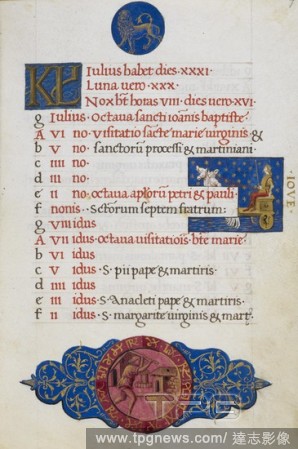 KL Iulius habet dies·XXXI·
Luna uero·XXX·
Nox bet horas VIII·dies uero·XVI·
g Iulius·Octaua sancti ioānis baptiste·
A VI no·Visitatio sācte marie uirginis &
b V no·sanctorū processi & martiniani·
c IIII no·
d III no·
e II no·octaua aplorū petri & pauli·
f nonis·Sctorum septem fratrum·
g VIII idus
A VII idus·octaua uisitatiōis·bte marie·
b VI idus
c V idus·S·pii pape & martiris·
d IIII idus·
e III idus·S·Anacleti pape & martiris·
f II idus·S·margarite uirginis & mart·
IOVE·
TPG
www.tpgnews.com/達志影像